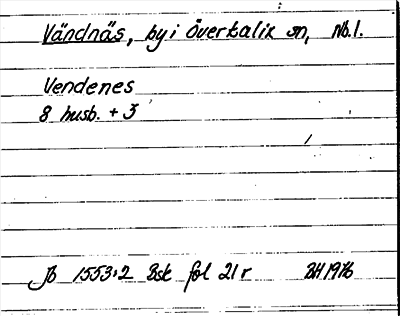 Vändnäs, by i Överkalix sn, Nb.l.
Vendenes
8 husb. + 3
Jb 1553:2 Bsk fol 21r BH 1976